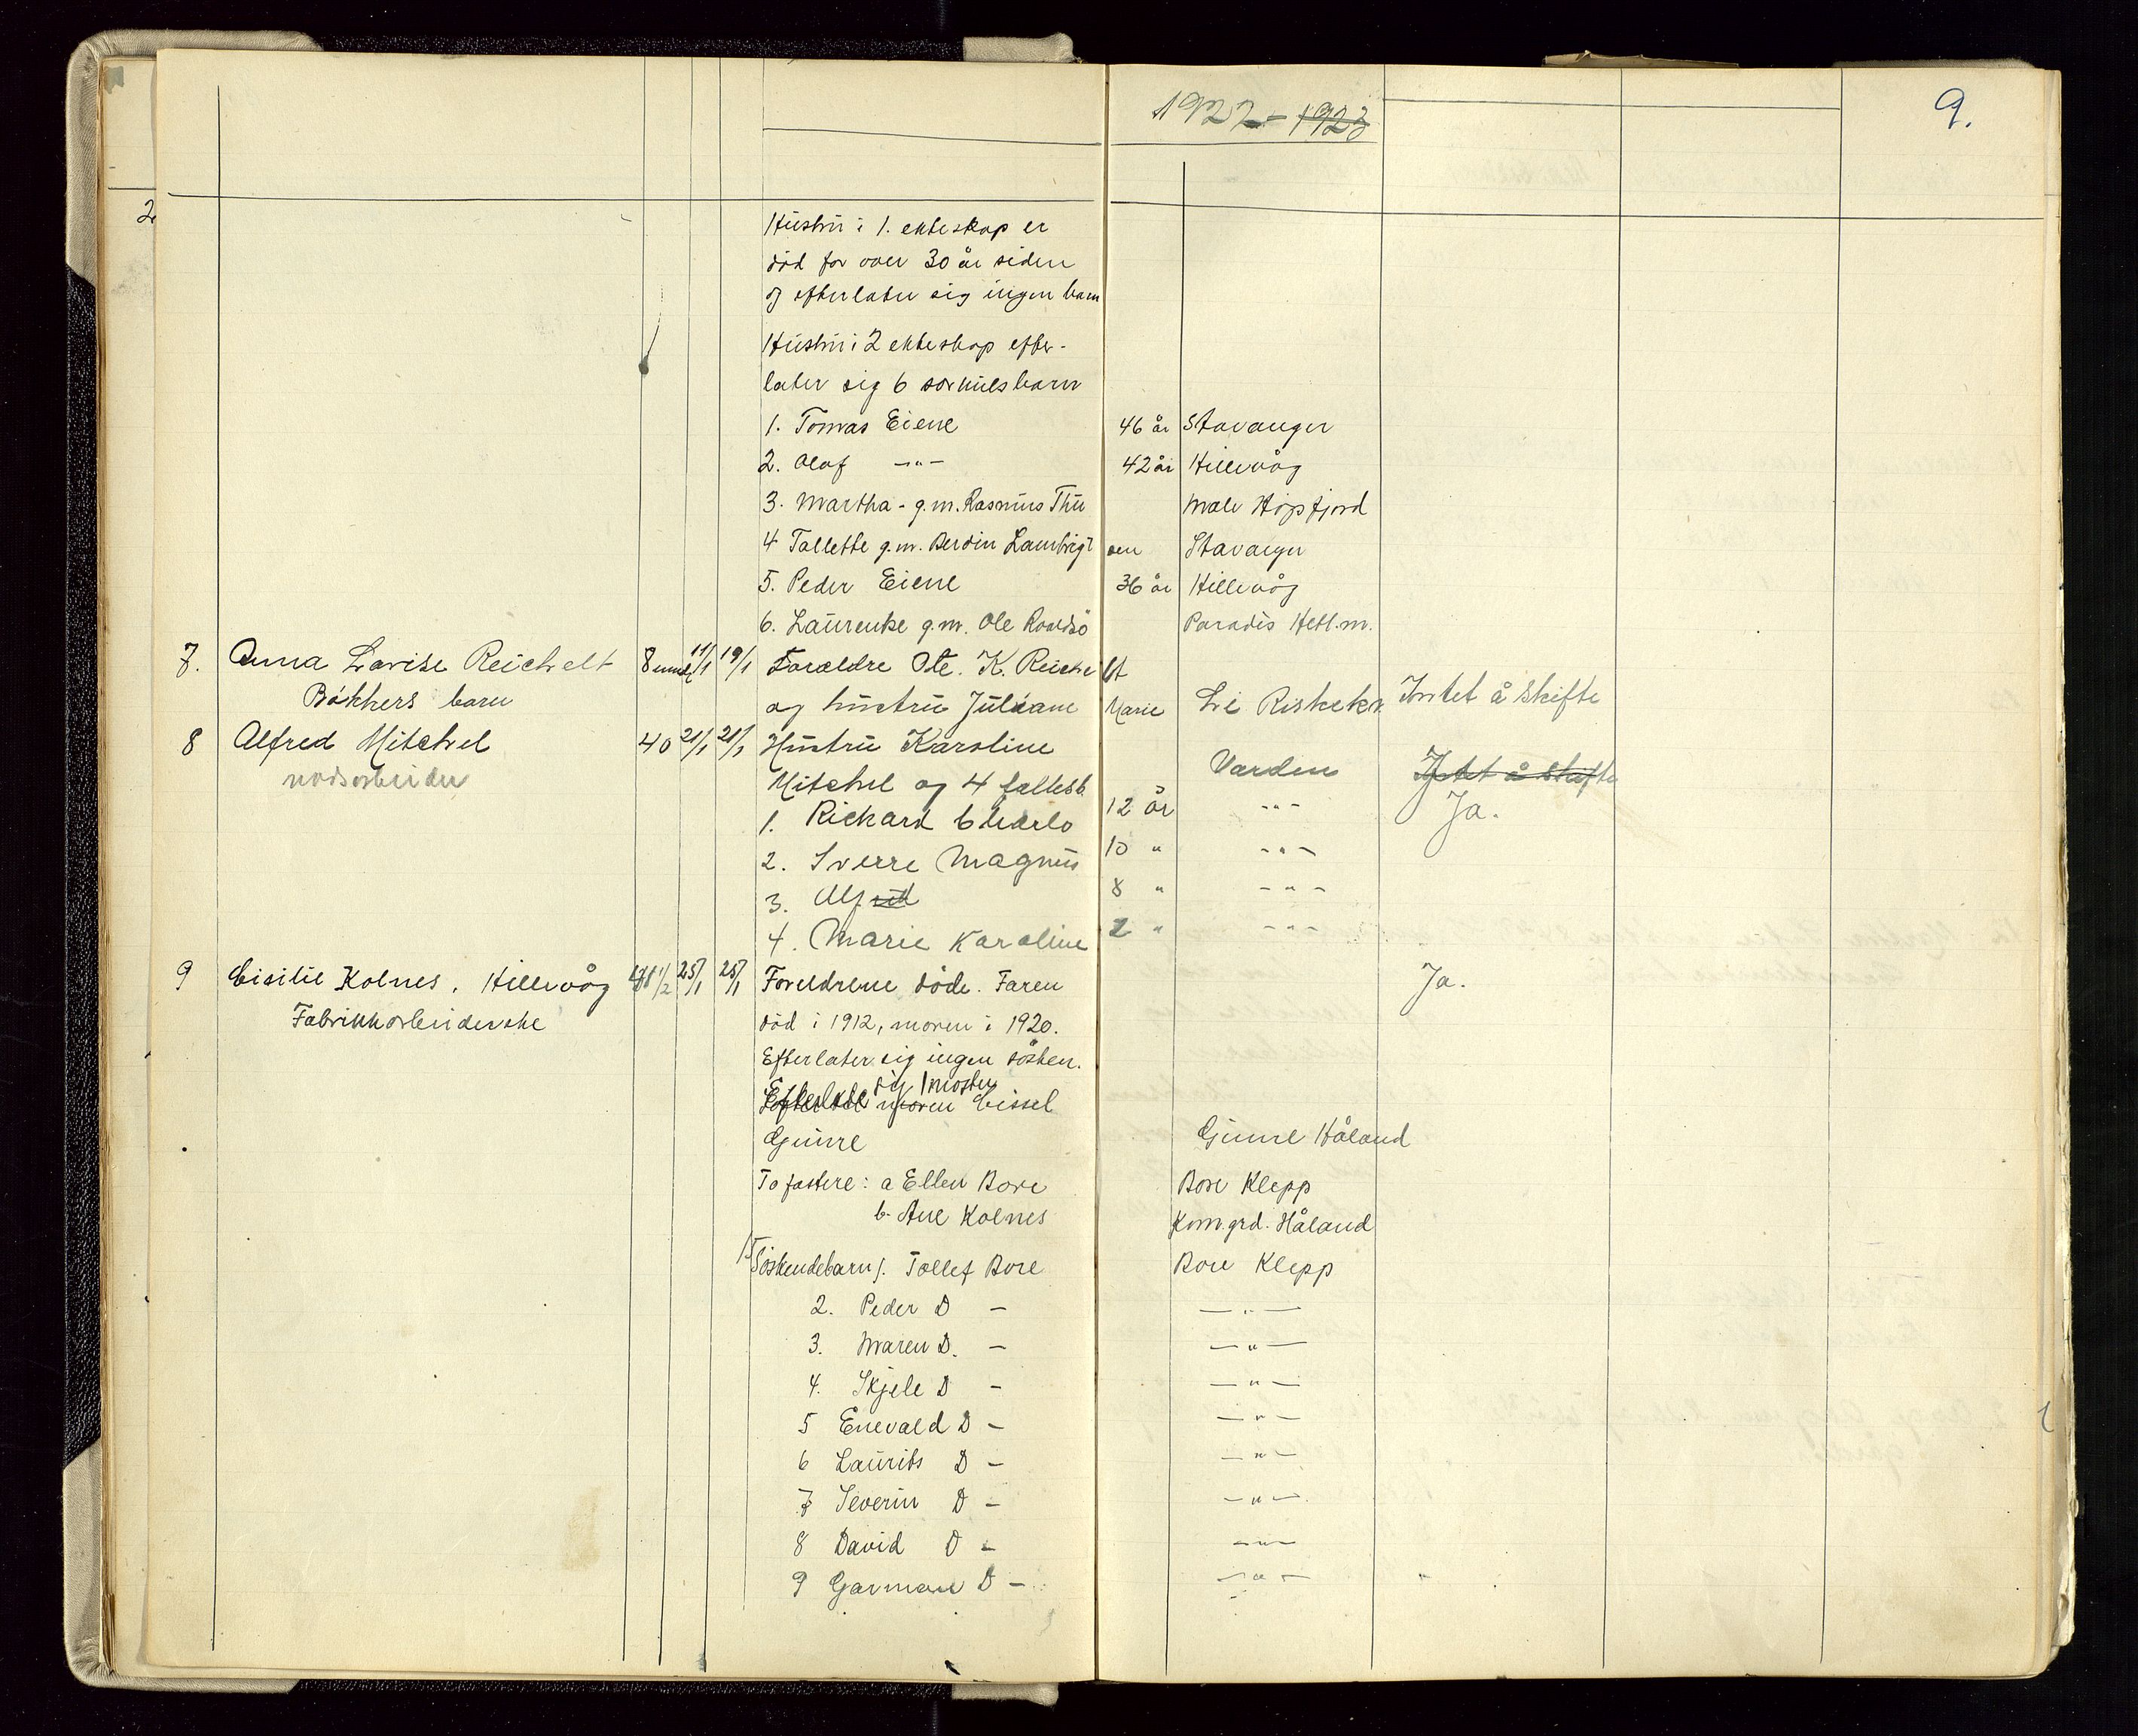 1922 - 1923
9.
2
Hustru i 1. ekteskap er
död for over 30 år siden
og efterlater sig ingen barn
Hustru i 2 ekteskap efter-
later sig 6 samkuldsbarn
1. Tomas Eiene 46 år Stavanger
2. Olaf -"- 42 år Hillevåg
3. Martha - g.m. Rasmus Thu Høgsfjord
4 Tallette g.m. Berdin Stavanger
5. Peder Eiene 36 år Hillevåg
6. Laurentse g.m. Ole Paradis Hetl.m.
7. Anna Lovise Reichelt 8 mnd 11/1 19/1 Foraeldre K. Reichelt
Bökkers barn og hustru Juliane Marie Intet å skifte
8 Alfred Mitchel 40 21/1 21/1 Hustru Karoline Varden Intet å skifte
nodsarbeider Mitchel og 4 fellesb.
1. Rickard Charlo 12 år -"- Ja.
2. Sverre Magnus 10 " -"-
3. Alfred 8 " -"-
4. Marie Karoline 2 " -"-
9 Cisilie Kolnes, Hillevåg 25/1 25/1 Foreldrene döde. Faren Ja.
Fabrikkarbeiderske död i 1912, moren i 1920.
Efterlater sig ingen sösken.
Efterlater sig 1 moster
moren Cissel
Gimre Gimre Håland
To fastere: a Ellen Bore Bore Klepp
b. Ane Kolnes Håland
Söskendebarn 1. Tollef Bore Bore Klepp
2. Peder D - -"-
3. Maren D. - -"-
4. Skjele D - -"-
5 Enevald D - -"-
6 Laurits D - -"-
7 Severin D - -"-
8 David D - -"-
9 Garman D - -"-